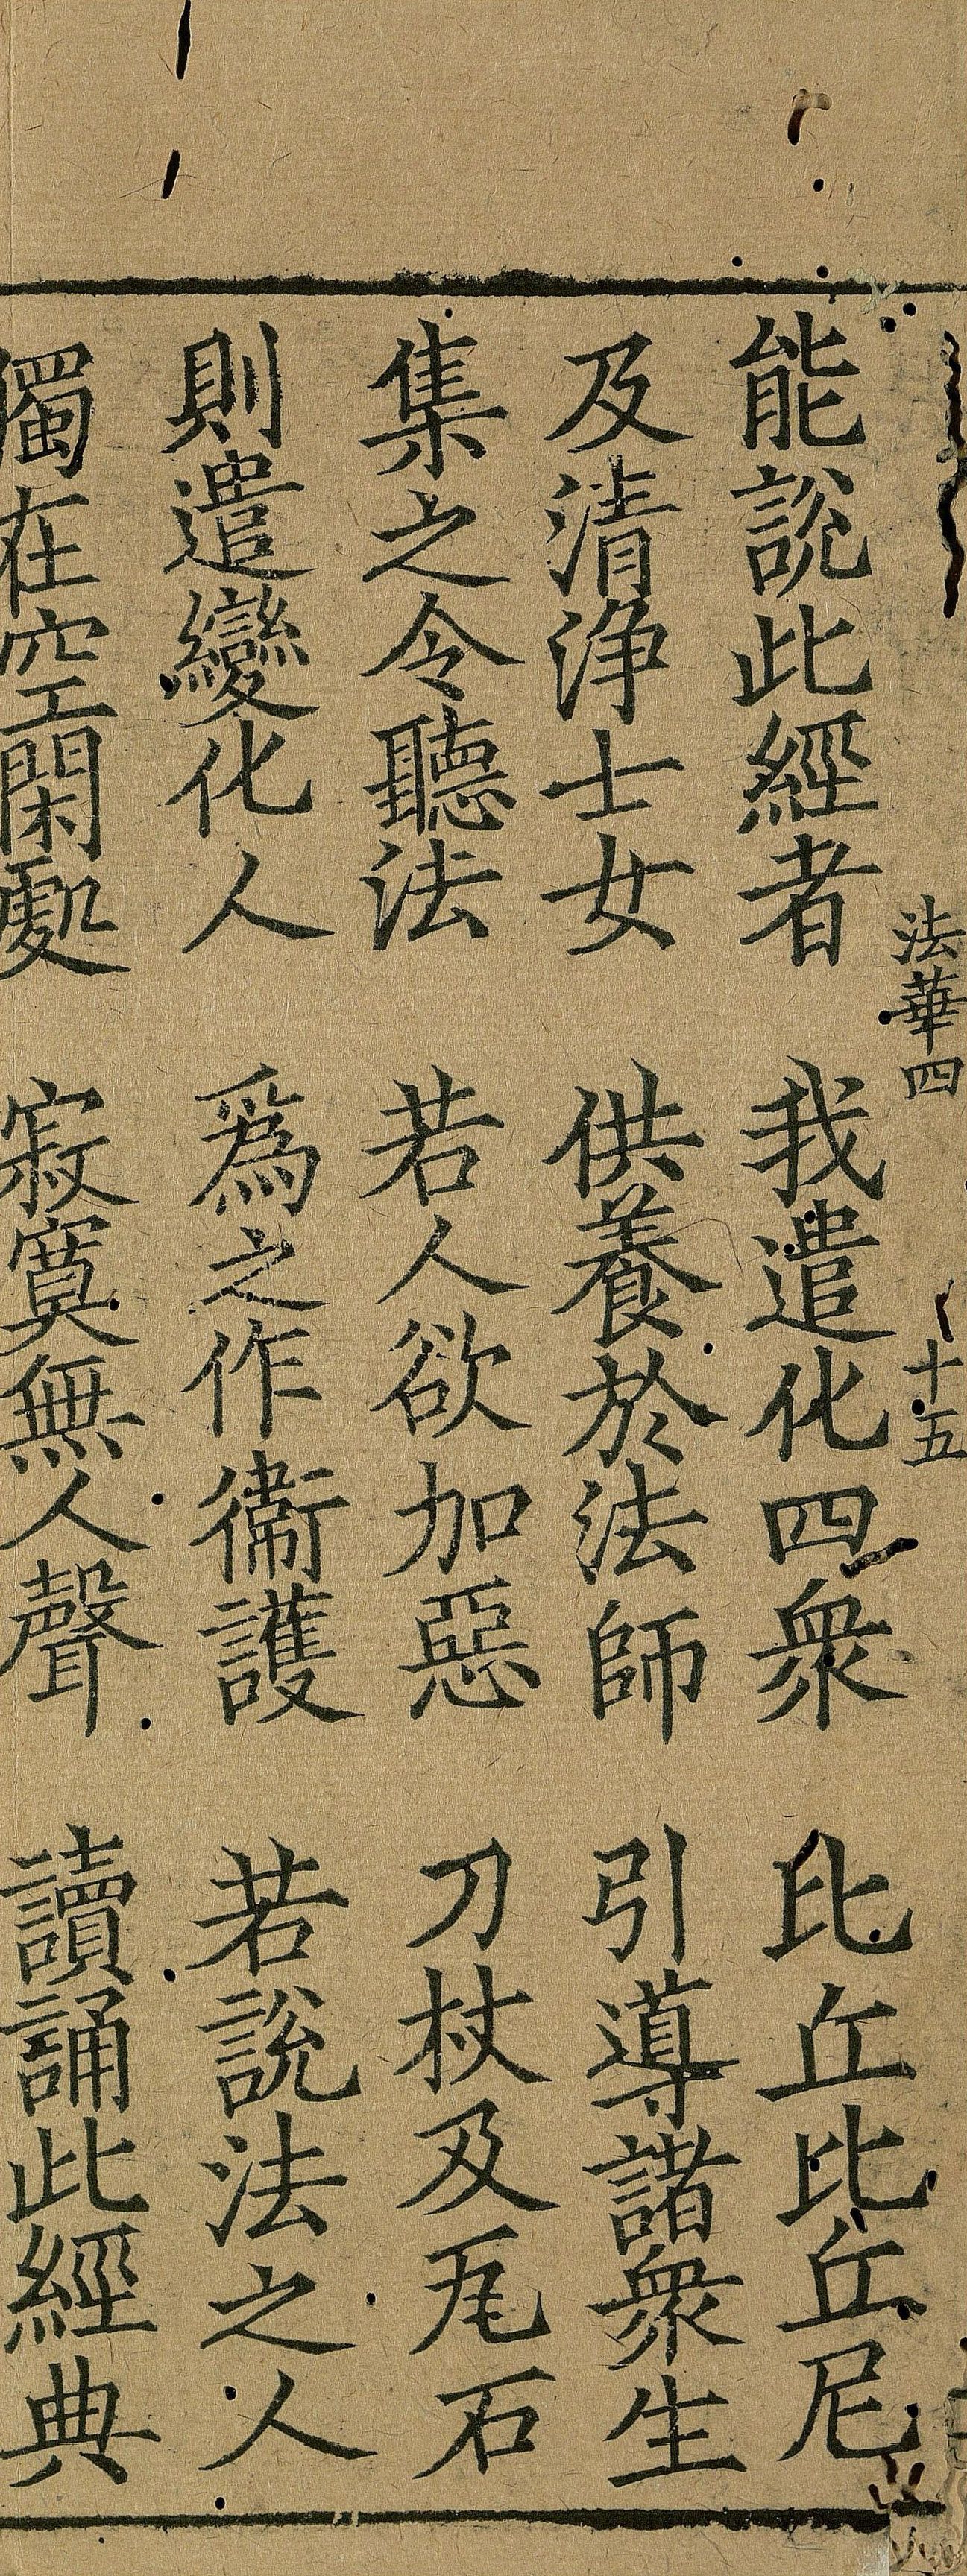 法華四 十五
能說此經者 我遣化四衆 比丘比丘尼
及清淨士女 供養於法師 引導諸衆生
集之令聽法 若人欲加惡 刀杖及瓦石
則遣變化人 爲之作衞護 若說法之人
獨在空閑處 寂寞無人聲 讀誦此經典